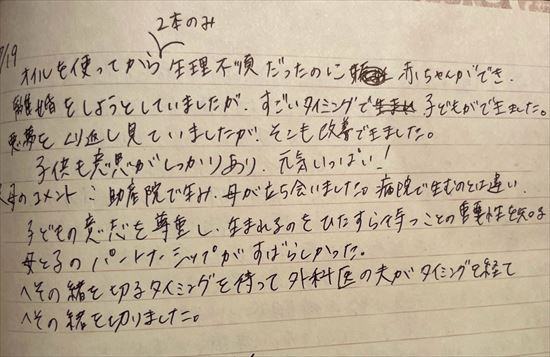 2本のみ
7/19
オイルを使ってから生理不順だったのに赤ちゃんができ、
離婚をしようとしていましたが、すごいタイミングで子どもができました。
悪夢をくり返し見ていましたが、そこも改善できました。
子供も意思がしっかりあり、元気いっぱい!
母のコメント:助産院で生み、母が立ち会いました。病院で生むのとは違い、
子どもの意志を尊重し、生まれるのをひたすら待つことの重要性を知る
母と子のパートナーシップがすばらしかった。
へその緒を切るタイミングを待って外科医の夫がタイミングを経て
へその緒を切りました。